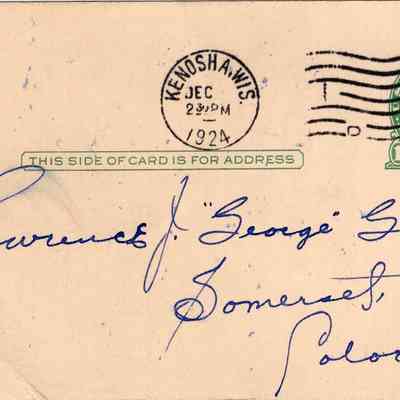 KENOSHA, WIS.
DEC
230PM
1924
THIS SIDE OF CARD IS FOR ADDRESS
awrence J. "George" G
Somerset,
Color